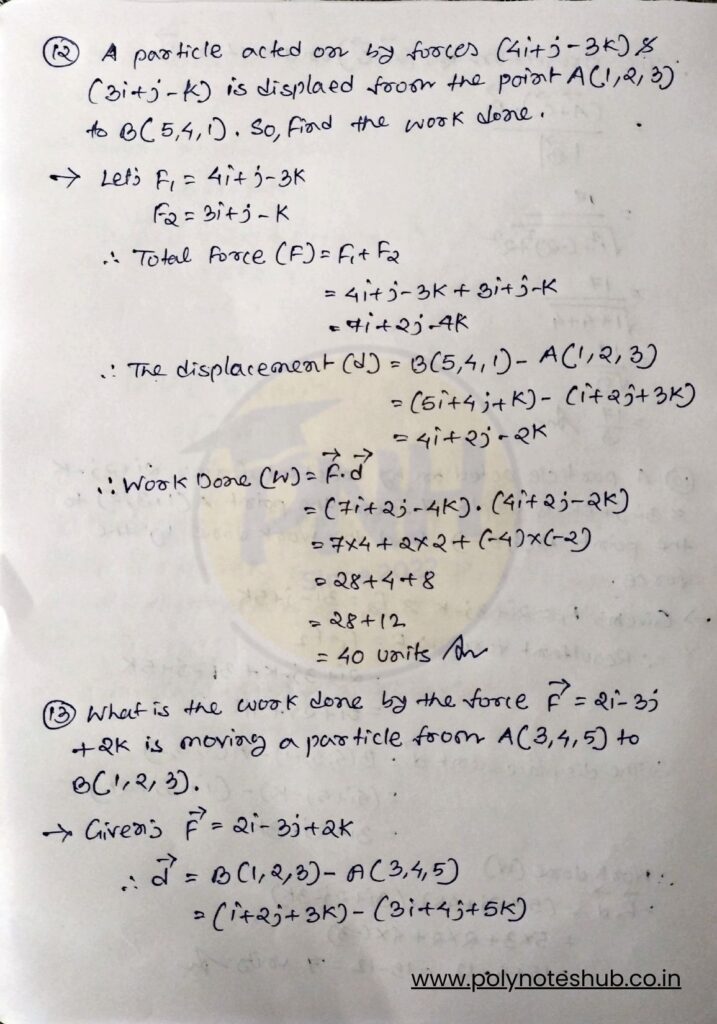 (12) A particle acted on by forces (4i+j-3K) &
(3i+j-K) is displaed from the point A(1,2,3)
to B(5,4,1). So, find the work done.
→ Let; F₁ = 4i+j-3K
F₂ = 3i+j-K
∴ Total Force (F) = F₁+F₂
= 4i+j-3K+3i+j-K
= 7i+2j-4K
∴ The displacement (d) = B(5,4,1) - A(1,2,3)
= (5i+4j+K) - (i+2j+3K)
= 4i+2j-2K
∴ Work Done (W) = F⃗.d⃗
= (7i+2j-4K).(4i+2j-2K)
= 7×4+2×2+(-4)×(-2)
= 28+4+8
= 28+12
= 40 units Ans
(13) What is the work done by the force F⃗ = 2i-3j
+2K is moving a particle from A(3,4,5) to
B(1,2,3).
→ Given; F⃗ = 2i-3j+2K
∴ d⃗ = B(1,2,3) - A(3,4,5)
= (i+2j+3K) - (3i+4j+5K)
www.polynoteshub.co.in